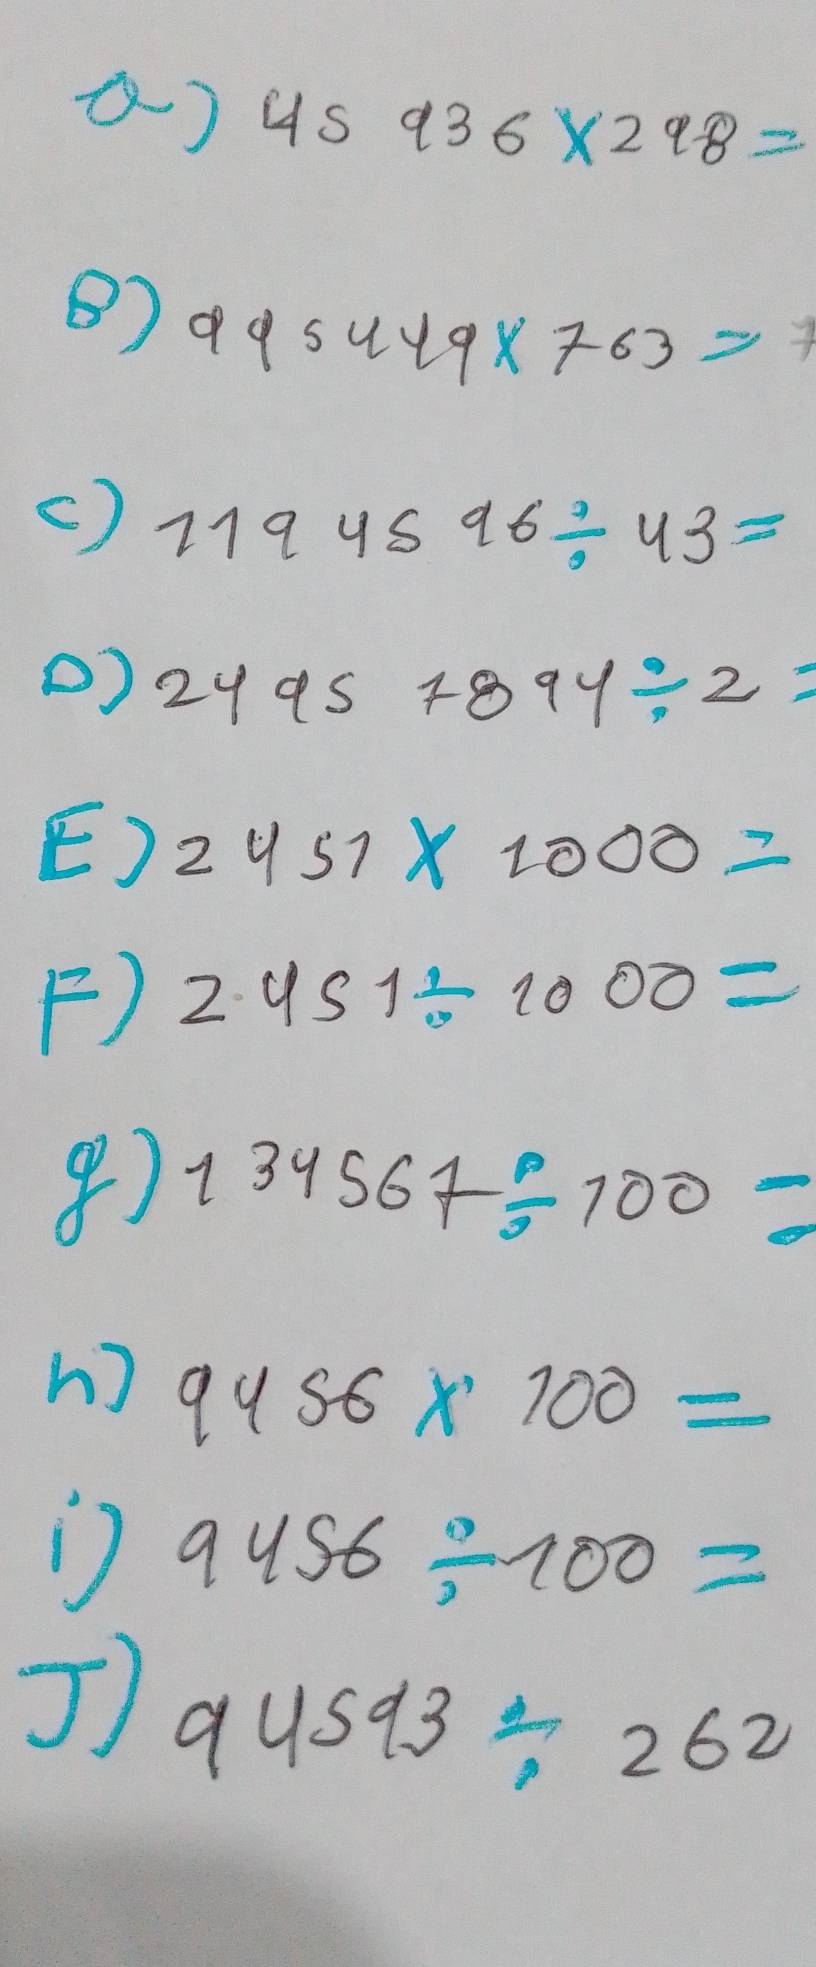 a) 45 936 x 298 =
B) 995449 x 763 = 7
C) 119 45 96 ÷ 43 =
D) 2495 7894 ÷ 2 =
E) 2451 x 1000 =
F) 2.451 ÷ 1000 =
g) 134567 ÷ 100 =
h) 9456 x 100 =
i) 9456 ÷ 100 =
J) 94593 ÷ 262